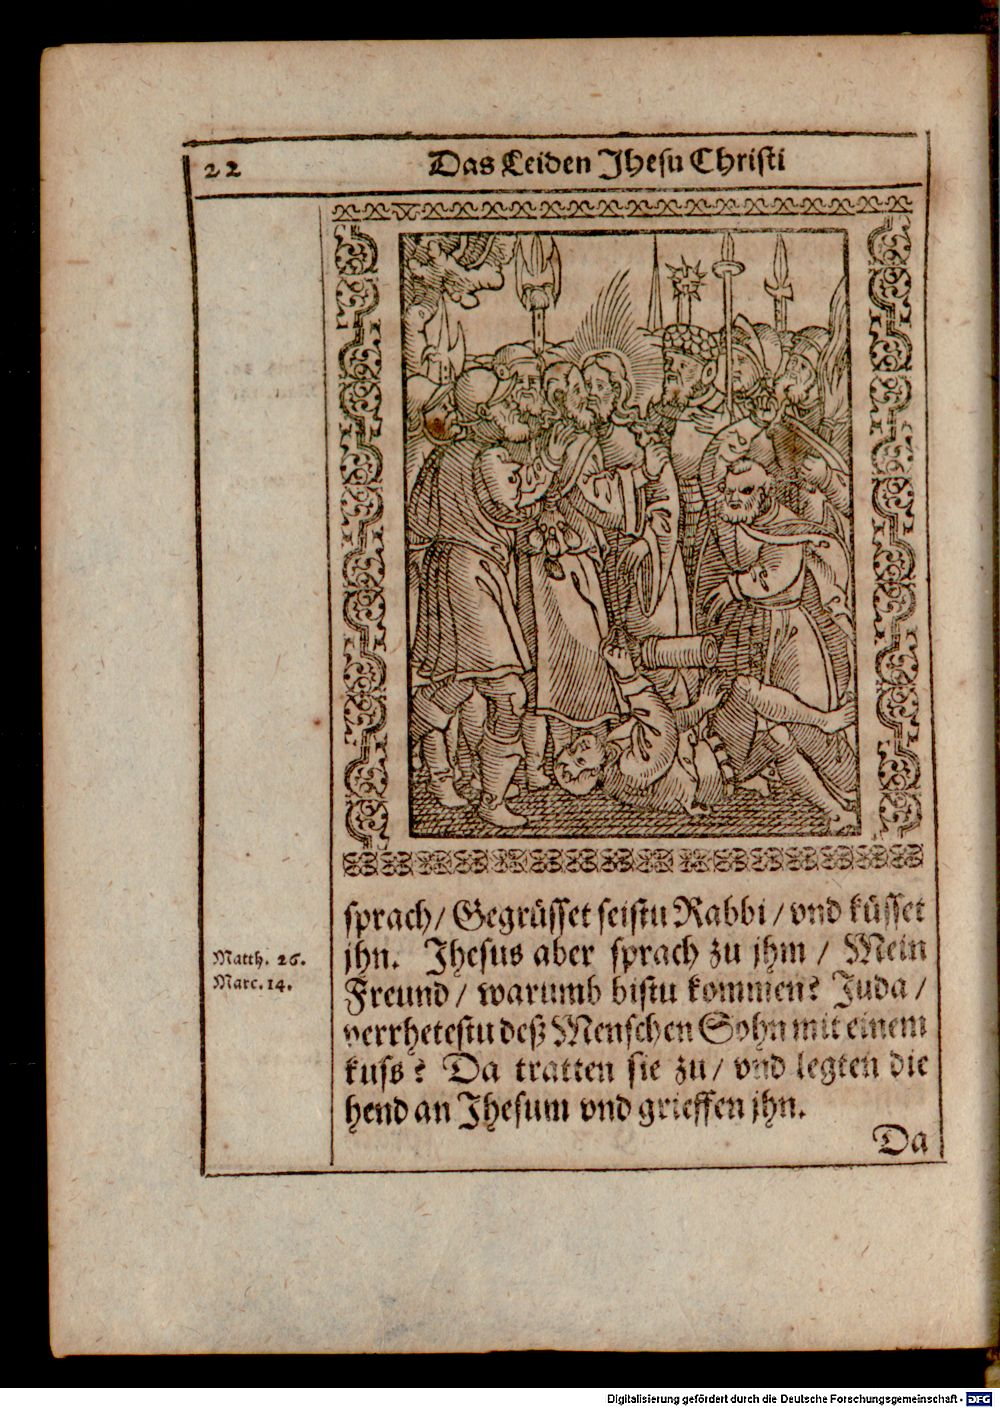 22
Das Leiden Jhesu Christi
sprach/ Gegrüsset seistu Rabbi/ vnd küsset
jhn. Jhesus aber sprach zu jhm / Mein
Freund/ warumb bistu kommen? Juda/
verrhetestu deß Menschen Sohn mit einem
kuss? Da tratten sie zu/ vnd legten die
hend an Jhesum vnd grieffen jhn.
Matth. 26.
Marc. 14.
Da
Digitalisierung gefördert durch die Deutsche Forschungsgemeinschaft - DFG